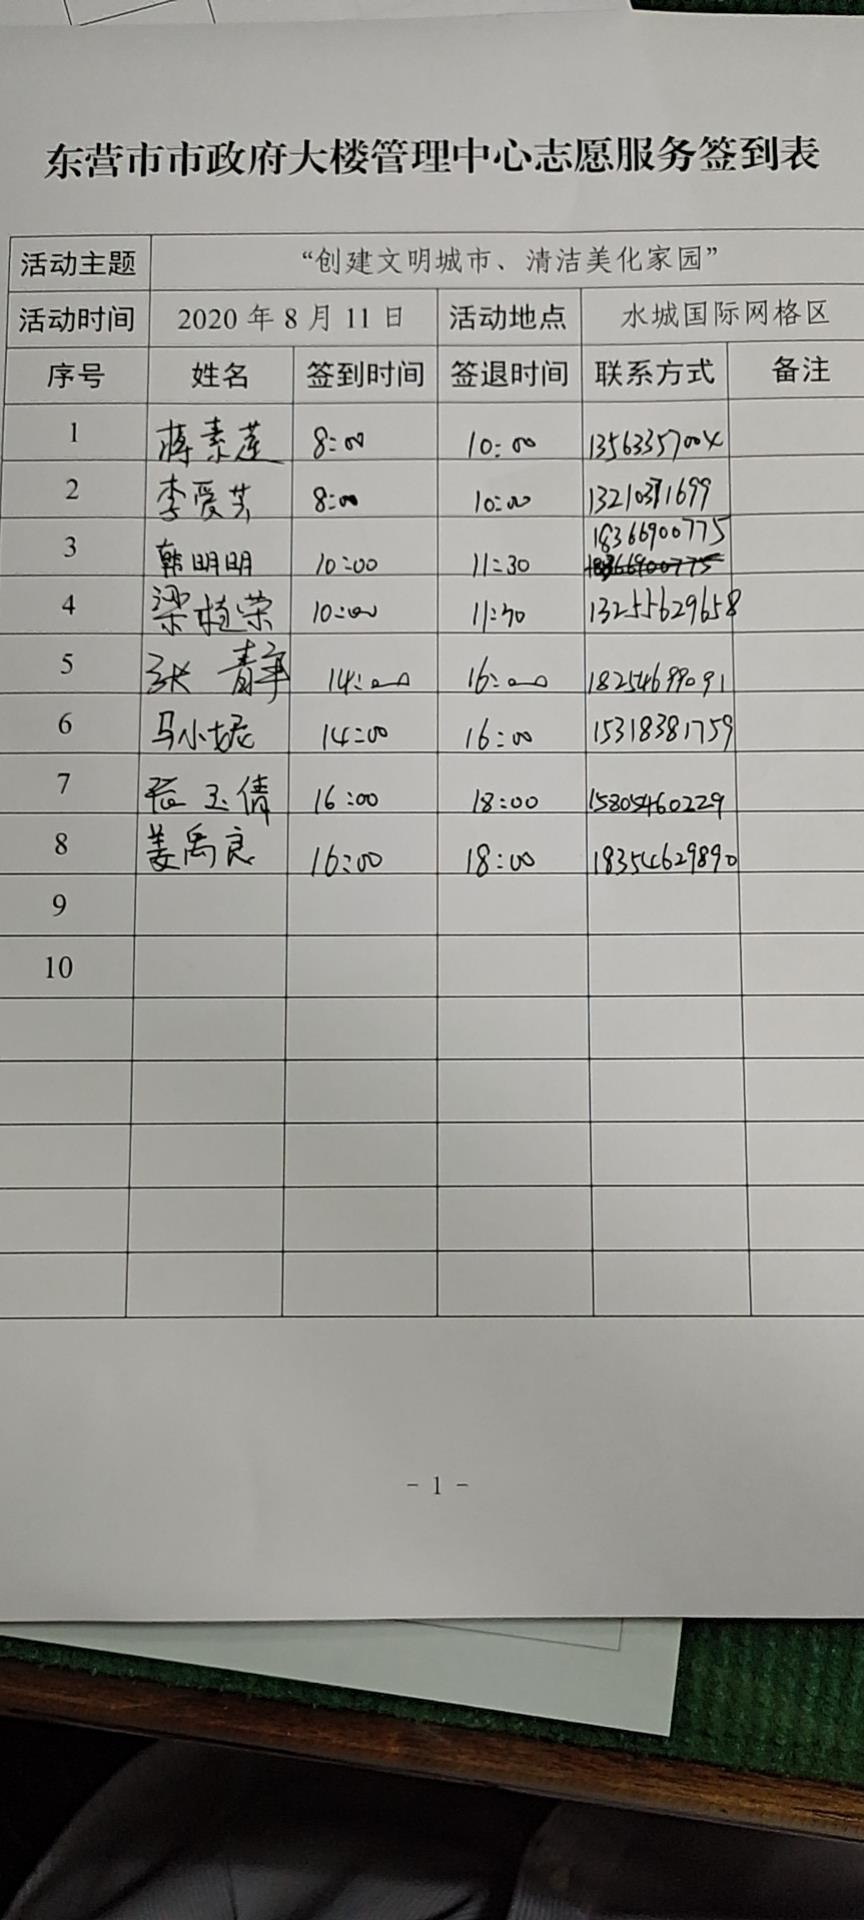 东营市市政府大楼管理中心志愿服务签到表
活动主题 “创建文明城市、清洁美化家园”
活动时间 2020 年 8 月 11 日 活动地点 水城国际网格区
序号 姓名 签到时间 签退时间 联系方式 备注
1 蒋素莲 8:00 10:00
2 李爱芸 8:00 10:00
3 韩明明 10:00 11:30 18366900775
4 梁桂荣 10:00 11:30 13255629658
5 张青 14:00 16:00 18254699091
6 马小妮 14:00 16:00 15318381759
7 张玉倩 16:00 18:00 15805460229
8 姜禹良 16:00 18:00 18354629890
9
10
- 1 -